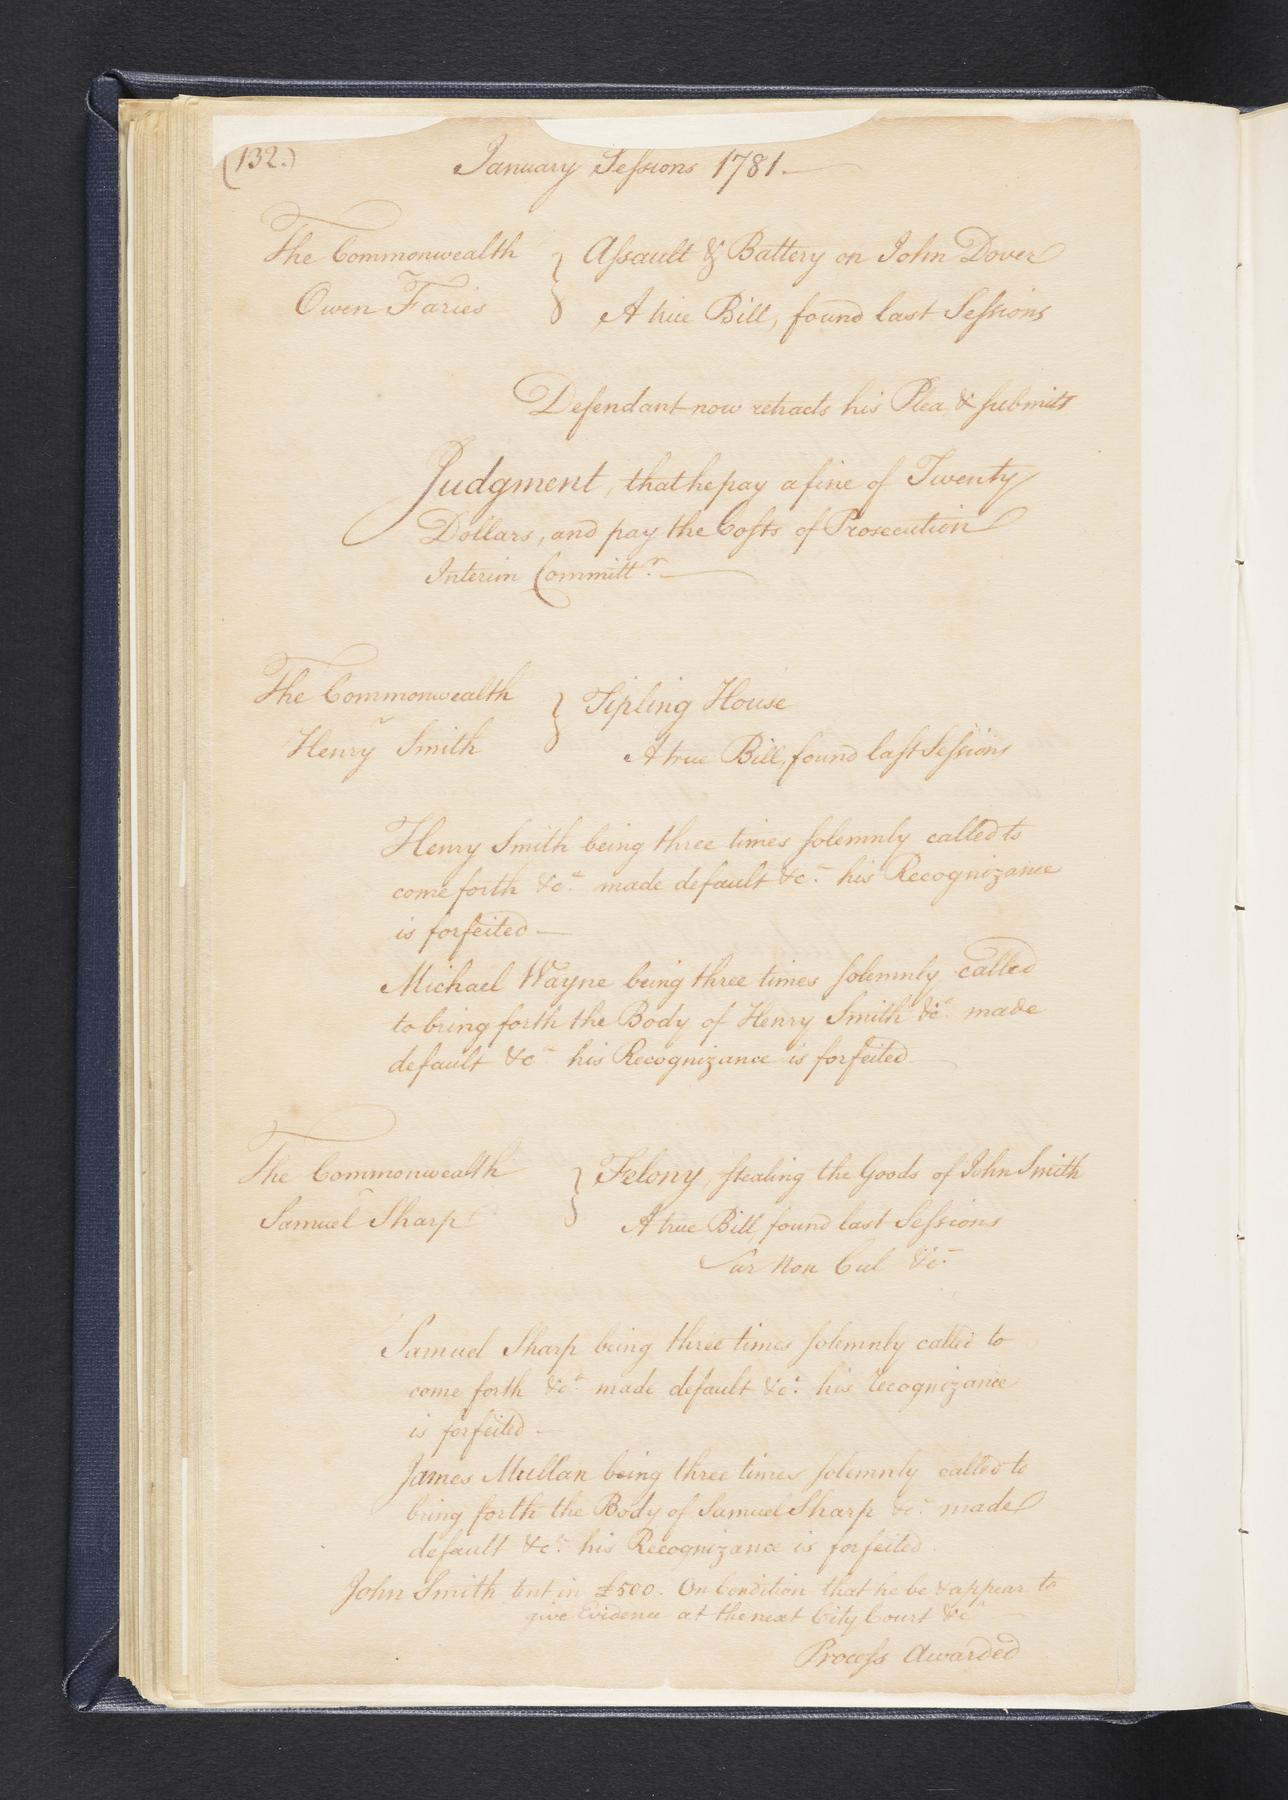 (132.)
January Sessions 1781.—
The Commonwealth } Assault & Battery on John Dover
Owen Faries } A true Bill, found last Sessions
Defendant now retracts his Plea, & submits
Judgment, that he pay a fine of Twenty
Dollars, and pay the Costs of Prosecution
Interim Committr.—
The Commonwealth } Tipling House
Henry Smith } A true Bill, found last Sessions
Henry Smith being three times solemnly called to
come forth &ca. made default &c. his Recognizance
is forfeited—
Michael Wayne being three times solemnly called
to bring forth the Body of Henry Smith &ca. made
default &c his Recognizance is forfeited—
The Commonwealth } Felony, stealing the Goods of John Smith
Samuel Sharp } A true Bill, found last Sessions
Sur Non Cul &c.
Samuel Sharp being three times solemnly called to
come forth &ca. made default &ca. his recognizance
is forfeited—
James Mullan being three times solemnly called to
bring forth the Body of Samuel Sharp &c. made
default &ca. his Recognizance is forfeited.
John Smith tent in £500. On Condition that he be & appear to
give Evidence at the next City Court &ca
Process Awarded